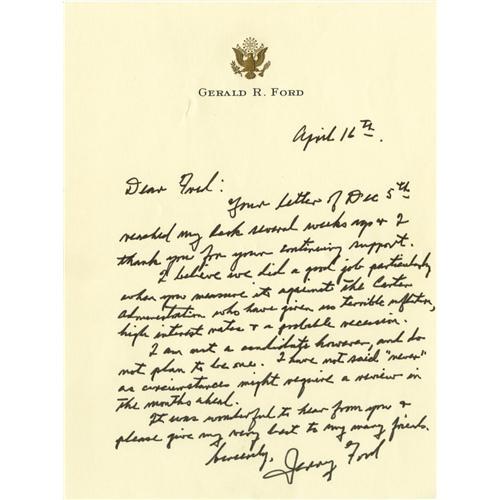 GERALD R. FORD
April 16th.
Dear Fred:
Your letter of Dec 5th
reached my desk several weeks ago & I
thank you for your continuing support.
I believe we did a good job particularly
when you measure its against the Carter
Administration who have given us terrible inflation,
high interest rates & a probable recession.
I am not a candidate however, and do
not plan to be one. I have not said "never"
as circumstances might require a review in
the months ahead.
It was wonderful to hear from you &
please give my very best to my many friends.
Sincerely,
Jerry Ford